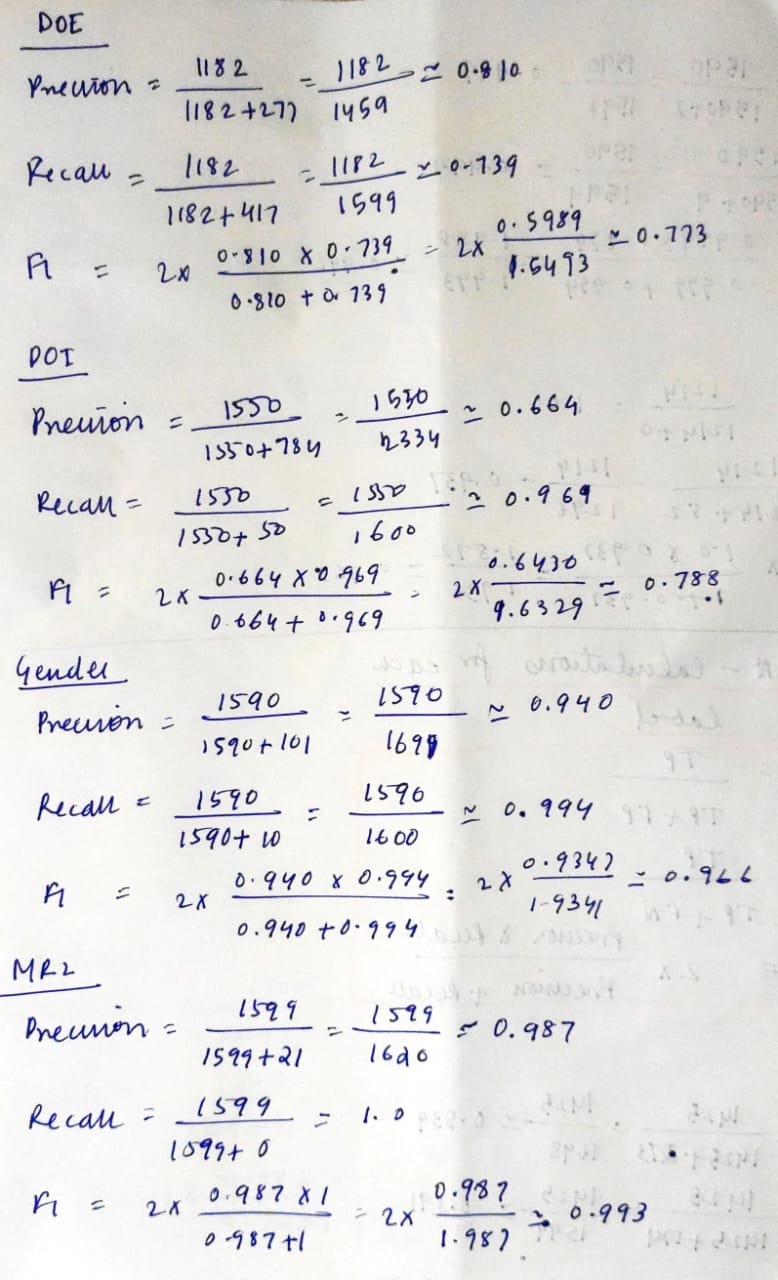 DOE
Precision = 1182 / 1182+277 = 1182 / 1459 ≃ 0.810
Recall = 1182 / 1182+417 = 1182 / 1599 ≃ 0.739
F1 = 2x 0.810 x 0.739 / 0.810 + 0.739 = 2x 0.5989 / 1.5493 ≃ 0.773
DOI
Precision = 1550 / 1550+784 = 1550 / 2334 ≃ 0.664
Recall = 1550 / 1550+50 = 1550 / 1600 ≃ 0.969
F1 = 2x 0.664 x 0.969 / 0.664 + 0.969 = 2x 0.6430 / 1.6329 ≃ 0.788
Gender
Precision = 1590 / 1590+101 = 1590 / 1691 ≃ 0.940
Recall = 1590 / 1590+10 = 1590 / 1600 ≃ 0.994
F1 = 2x 0.940 x 0.994 / 0.940 + 0.994 = 2x 0.9347 / 1.9341 ≃ 0.966
MRZ
Precision = 1599 / 1599+21 = 1599 / 1620 ≃ 0.987
Recall = 1599 / 1599+0 = 1.0
F1 = 2x 0.987 x 1 / 0.987+1 = 2x 0.987 / 1.987 ≃ 0.993